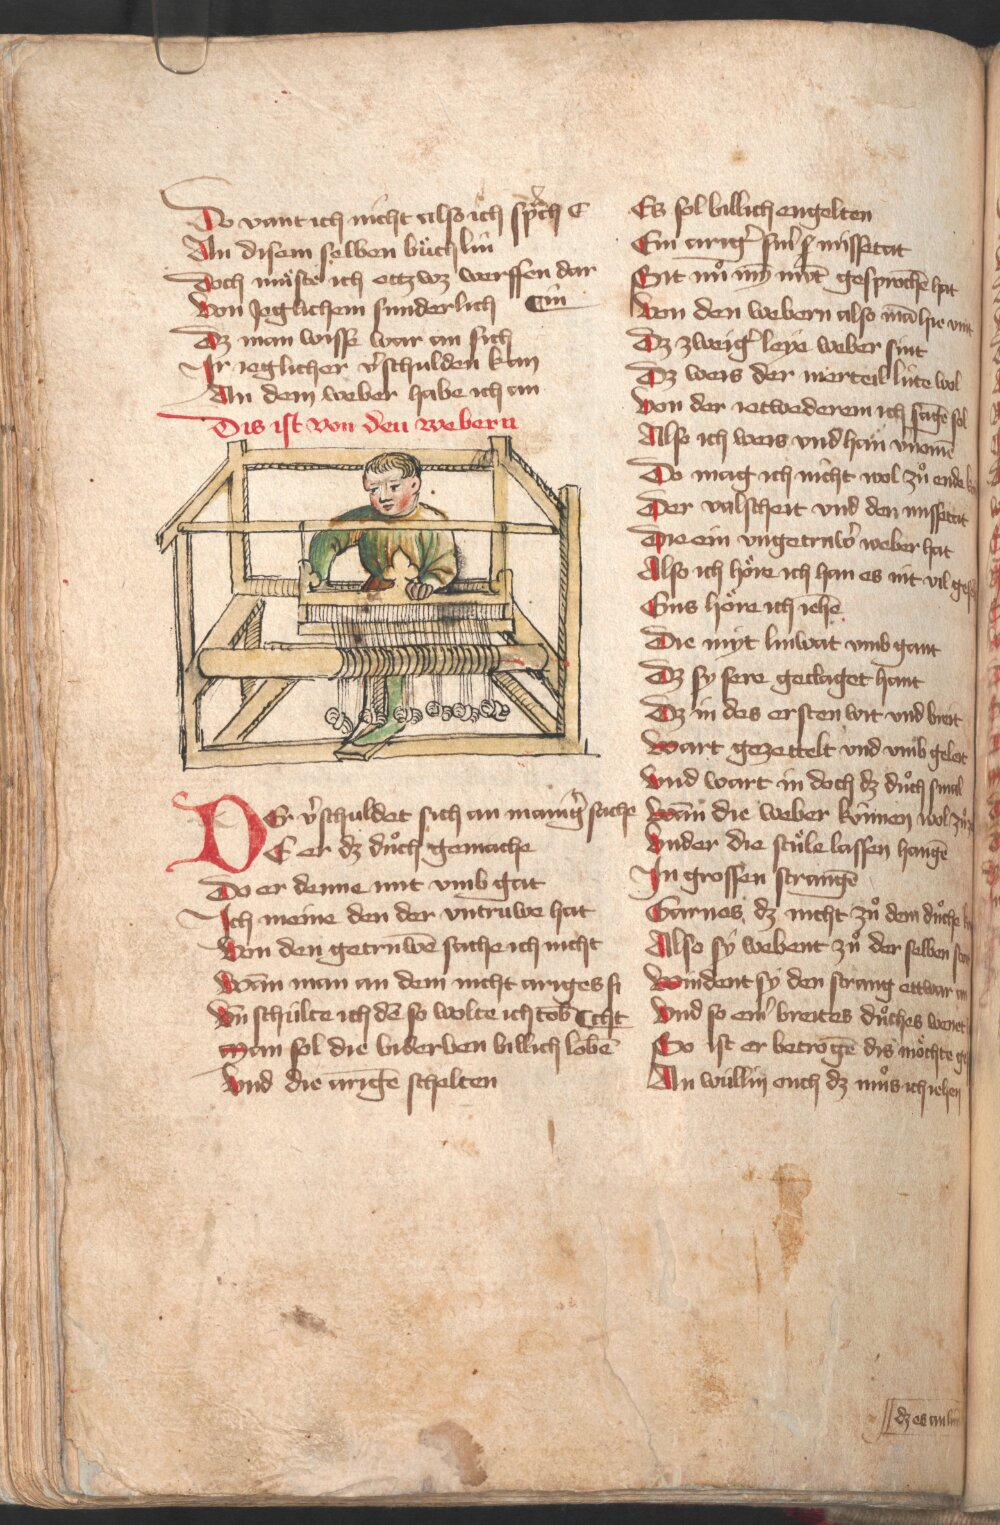 Do vant ich nicht also ich sprͤch e
An disem selben buͤchlin
Doch muͤste ich ettzwz werffen dar
Von Jeglichem sunderlich ein
Dz man wisse war an sich
Jr ieglicher v̓schulden kan
An dem weber habe ich an
Dis ist von den webern
DEr v̓schuldet sich an manig̓ sache
E er dz duͦch gemache
Do er denne mit vmb gat
Jch meine den der vntruwe hat
Von den getruwē sache ich nicht
Wān man an dem nicht arges si
Vn̄ schulte ich dē so wolte ich tob cht
Man sol die biderben billich lobē
Vnd die argē schelten
Es sol billich engelten
Ein arig̓ sin̓ missetat
Sit nuͦ min̄ mūt gesprochē hat
Von den webern also mā hie
Dz zweig̓ leye weber sint
Dz weis der merteil lúte wol
Von der ietwederem ich sagē sol
Also ich weis vnd han v̓nomē
Do mag ich nicht wol zuͦ ende
Der valscheit vnd den missetat
Die ein vngetruw̓ weber hat
Also ich hoͤre ich han es nit vil
Sus hoͤre ich iehē
Die myt linwat vmb gant
Dz sy sere geclaget hant
Dz in des ersten wit vnd breit
Wart gezettelt vnd vmb geleit
Vnd wart in doch dz duͦch smal
Wān die weber kúnnen wol
Vnder die stuͤle lassen hangē
Jn grossen strangē
Garnes dz nicht zuͦ dem duͦche
Also sy webent zuͦ der selben
Windent sy den strang ettwar
Vnd so ein̓ breites duͦches wenet
So ist er betrogē dis moͤchte
An wullin ouch dz muͦs ich iehen
dz es an